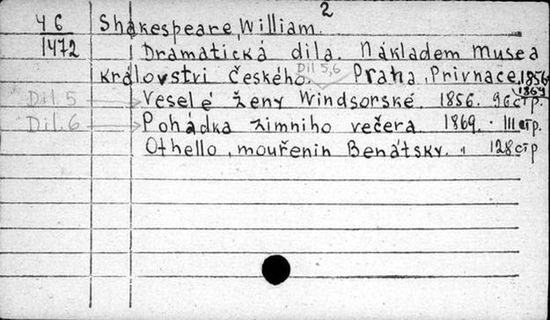 46 Shakespeare, William. 2
1472 Dramatická díla. Nákladem Musea
království Českého. Díl 5,6 Praha, Privnace, 1856
1869
Díl. 5 Veselé ženy Windsorské. 1856. 96 str.
Díl. 6 Pohádka zimního večera. 1869. 111 stp.
Othello, mouřenín Benátský. " 128 stp